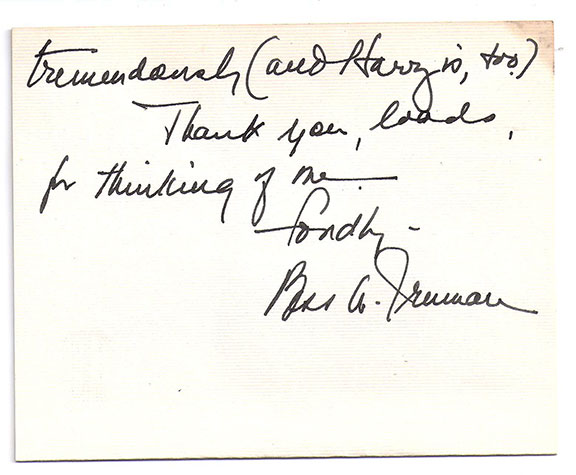 tremendously (and Harry is, too.)
Thank you, loads,
for thinking of me—
Fondly—
Bess W. Truman